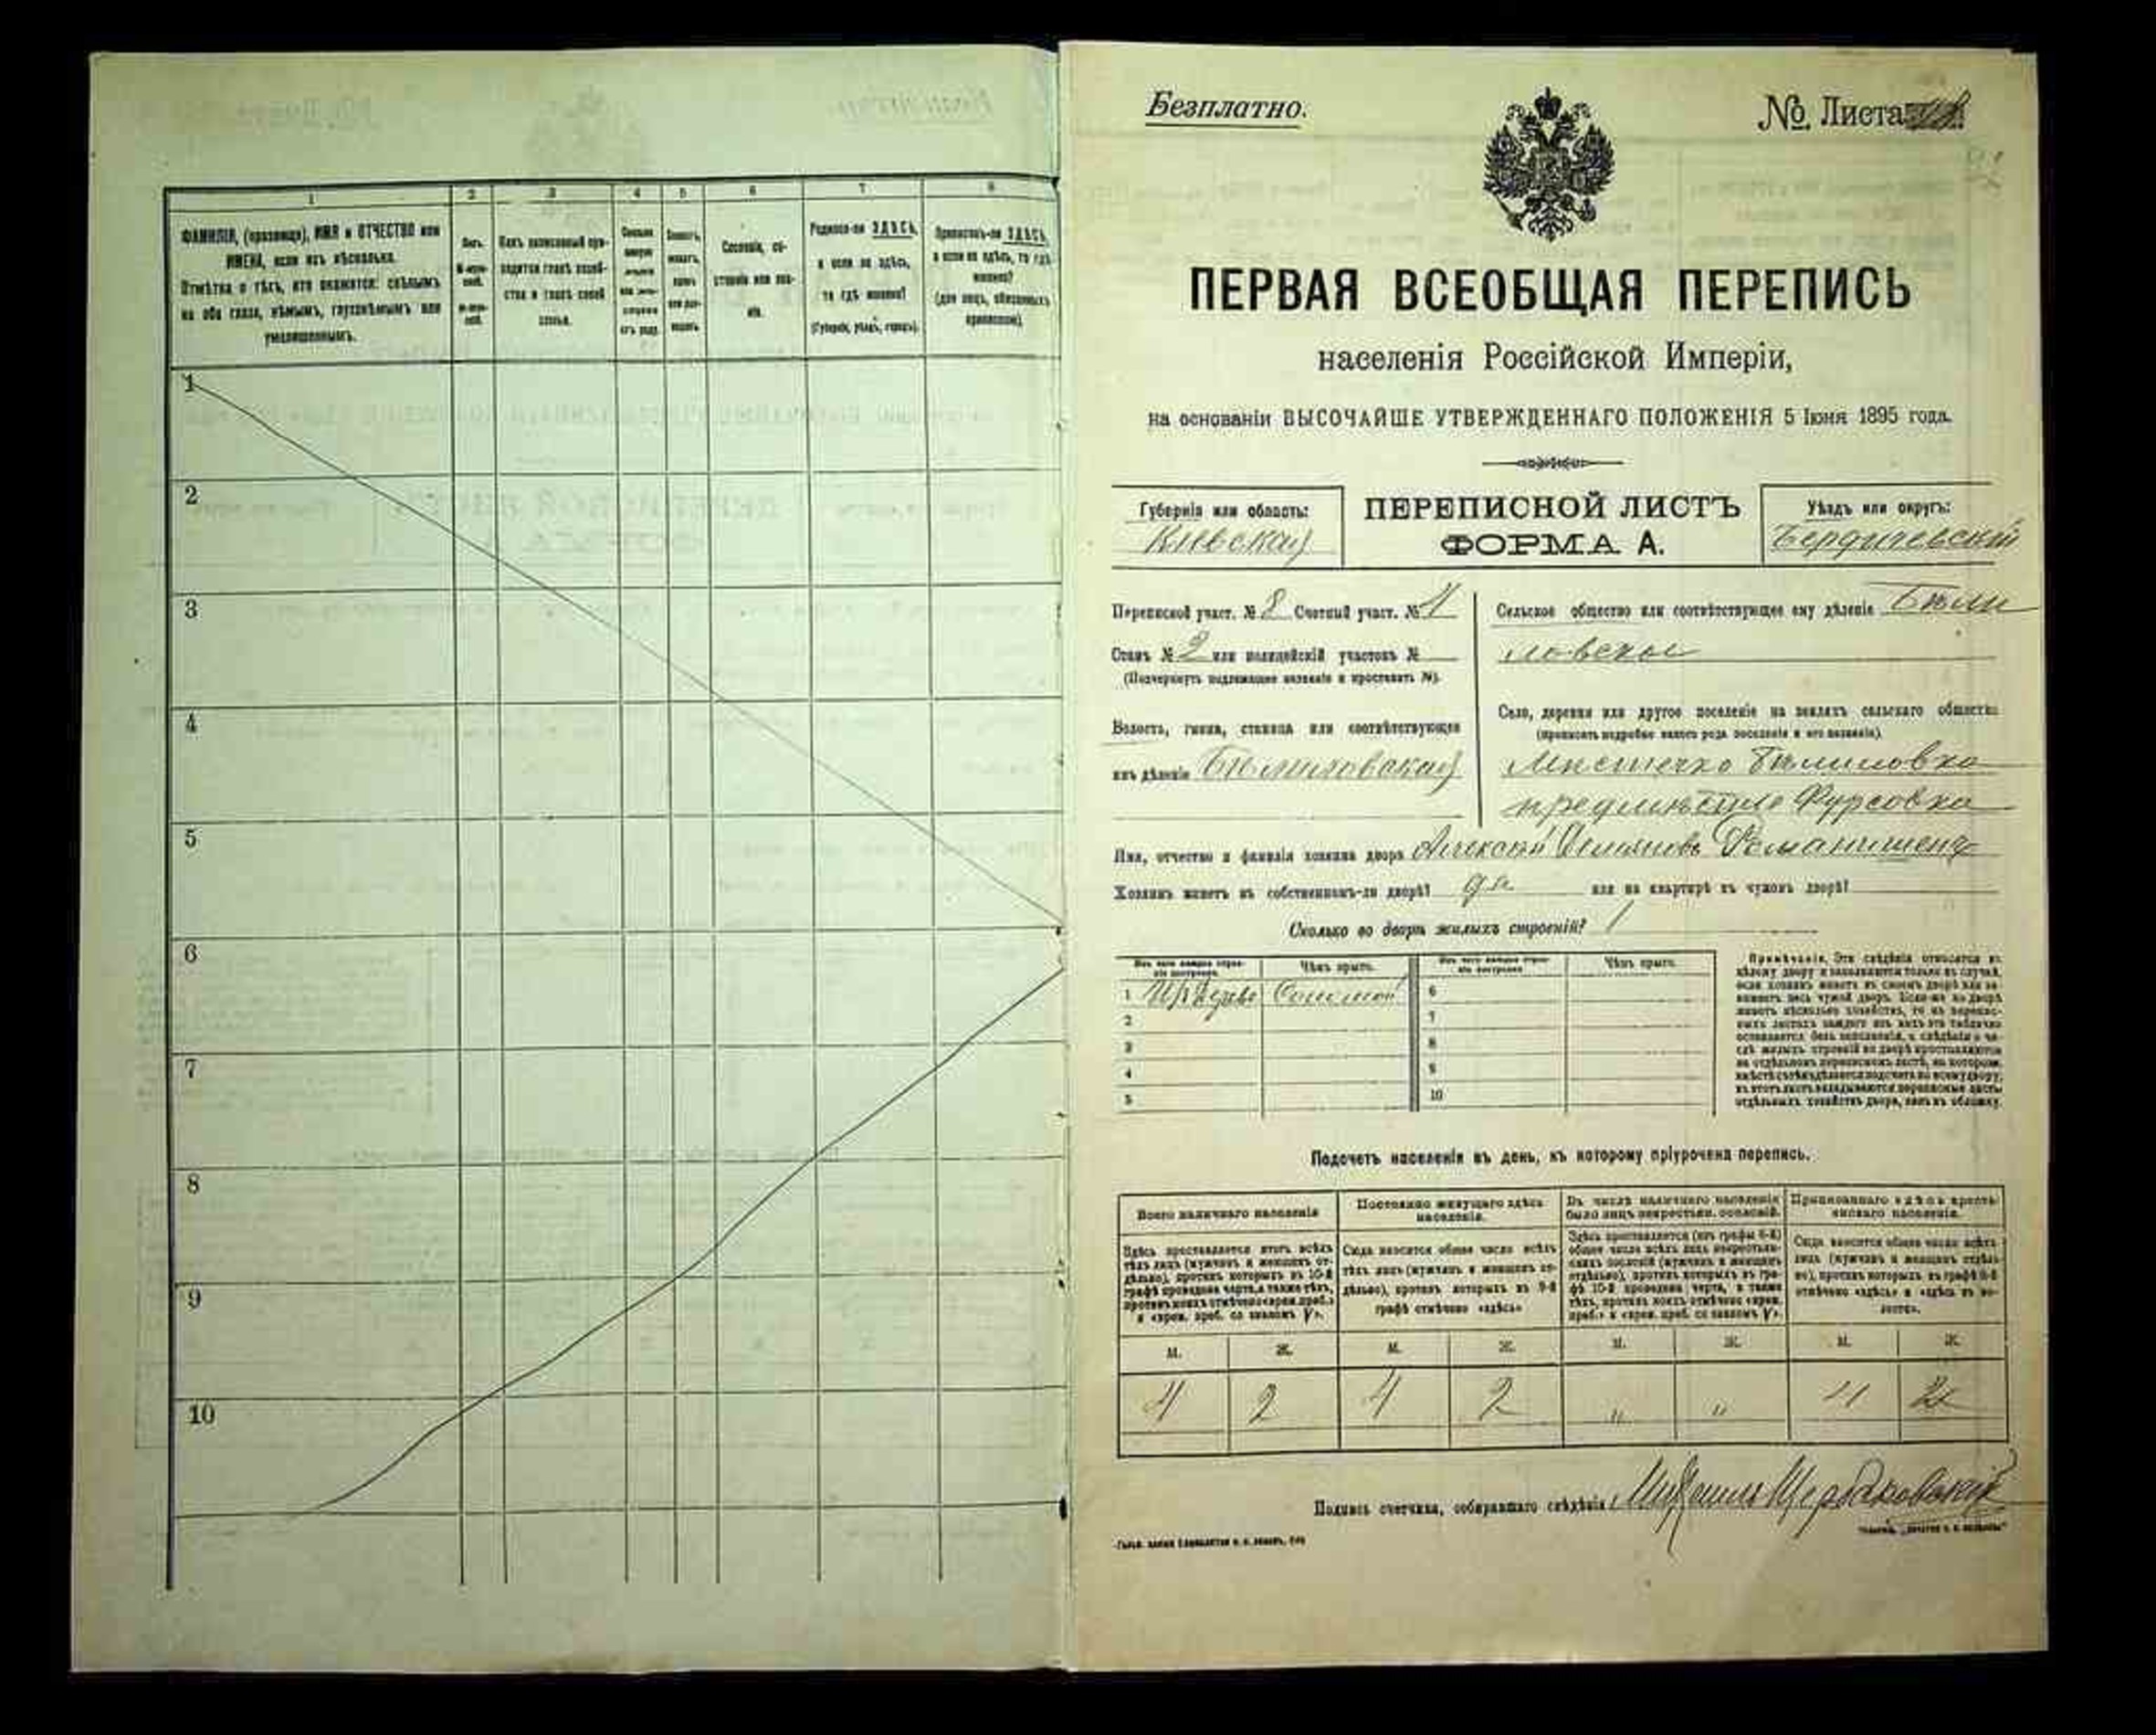 1 2 3 4 5 6 7 8
ФАМИЛІЯ, (прозвище), ИМЯ и ОТЧЕСТВО или
ИМЕНА, если ихъ нѣсколько.
Отмѣтка о тѣхъ, кто окажется: слѣпымъ
на оба глаза, нѣмымъ, глухонѣмымъ или
умалишеннымъ.
Полъ.
Какъ записанный при-
ходится главѣ хозяй-
ства и главѣ своей
семьи.
Сословіе, со-
стояніе или зва-
ніе.
Родился-ли ЗДѢСЬ,
а если не здѣсь,
то гдѣ именно?
(Губернія, уѣздъ, городъ).
Приписанъ-ли ЗДѢСЬ,
а если не здѣсь, то гдѣ
именно?
(для лицъ, обязанныхъ
припискою).
1
2
3
4
5
6
7
8
9
10
Безплатно.
№ Листа
ПЕРВАЯ ВСЕОБЩАЯ ПЕРЕПИСЬ
населенія Россійской Имперіи,
на основаніи ВЫСОЧАЙШЕ УТВЕРЖДЕННАГО ПОЛОЖЕНІЯ 5 Іюня 1895 года.
Губернія или область:
Кіевская
ПЕРЕПИСНОЙ ЛИСТЪ
ФОРМА А.
Уѣздъ или округъ:
Бердичевскій
Переписной участ. № 8 Счетный участ. № 4
Станъ № 2 или полицейскій участокъ №
(Подчеркнуть надлежащее названіе и проставить №).
Волость, гмина, станица или соотвѣтствующее
имъ дѣленіе Бѣлиловская
Сельское общество или соотвѣтствующее ему дѣленіе Бѣли
ловское
Село, деревня или другое поселеніе на земляхъ сельскаго общества
(прописать подробно какого рода поселеніе и его названіе).
Мѣстечко Бѣлиловка
предмѣстіе Фурсовка
Имя, отчество и фамилія хозяина двора Алексѣй Романишенъ
Хозяинъ живетъ въ собственномъ-ли дворѣ? да или на квартирѣ въ чужомъ дворѣ?
Сколько во дворѣ жилыхъ строеній? 1
Изъ чего каждое строе-
ніе построено. Чѣмъ крыто. Изъ чего каждое строе-
ніе построено. Чѣмъ крыто.
1 Соломой 6
2 7
3 8
4 9
5 10
Примѣчаніе. Эти свѣдѣнія относятся къ
цѣлому двору и заполняются только въ случаѣ,
если хозяинъ живетъ въ своемъ дворѣ или за-
нимаетъ весь чужой дворъ. Если-же во дворѣ
живетъ нѣсколько хозяйствъ, то на перепис-
ныхъ листахъ каждаго изъ нихъ эта табличка
оставляется безъ заполненія, а свѣдѣнія о чи-
слѣ жилыхъ строеній во дворѣ проставляются
на отдѣльномъ переписномъ листѣ, на которомъ
вмѣстѣ съ тѣмъ дѣлается подсчетъ по всему двору;
въ этотъ листъ вкладываются переписные листы
отдѣльныхъ хозяйствъ двора, какъ въ обложку.
Подсчетъ населенія въ день, къ которому пріурочена перепись.
Всего наличнаго населенія
Здѣсь проставляется итогъ всѣхъ
тѣхъ лицъ (мужчинъ и женщинъ от-
дѣльно), противъ которыхъ въ 10-й
графѣ проведена черта, а также тѣхъ,
противъ коихъ отмѣчено «врем. преб.»
и «врем. преб. со знакомъ V».
Постоянно живущаго здѣсь
населенія.
Сюда вносится общее число всѣхъ
тѣхъ лицъ (мужчинъ и женщинъ от-
дѣльно), противъ которыхъ въ 9-й
графѣ отмѣчено «здѣсь»
Въ числѣ наличнаго населенія
было лицъ некрестьян. сословій.
Здѣсь проставляется (изъ графы 6-й)
общее число всѣхъ лицъ некрестьян-
скихъ сословій (мужчинъ и женщинъ
отдѣльно), противъ которыхъ въ гра-
фѣ 10-й проведена черта, а также
тѣхъ, противъ коихъ отмѣчено «врем.
преб.» и «врем. преб. со знакомъ V».
Приписаннаго здѣсь кресть-
янскаго населенія.
Сюда вносится общее число всѣхъ
лицъ (мужчинъ и женщинъ отдѣль-
но), противъ которыхъ въ графѣ 8-й
отмѣчено «здѣсь» и «здѣсь въ во-
лости».
М. Ж. М. Ж. М. Ж. М. Ж.
4 2 4 2 " " 4 2
Подпись счетчика, собиравшаго свѣдѣнія Михаилъ Щербаковскій